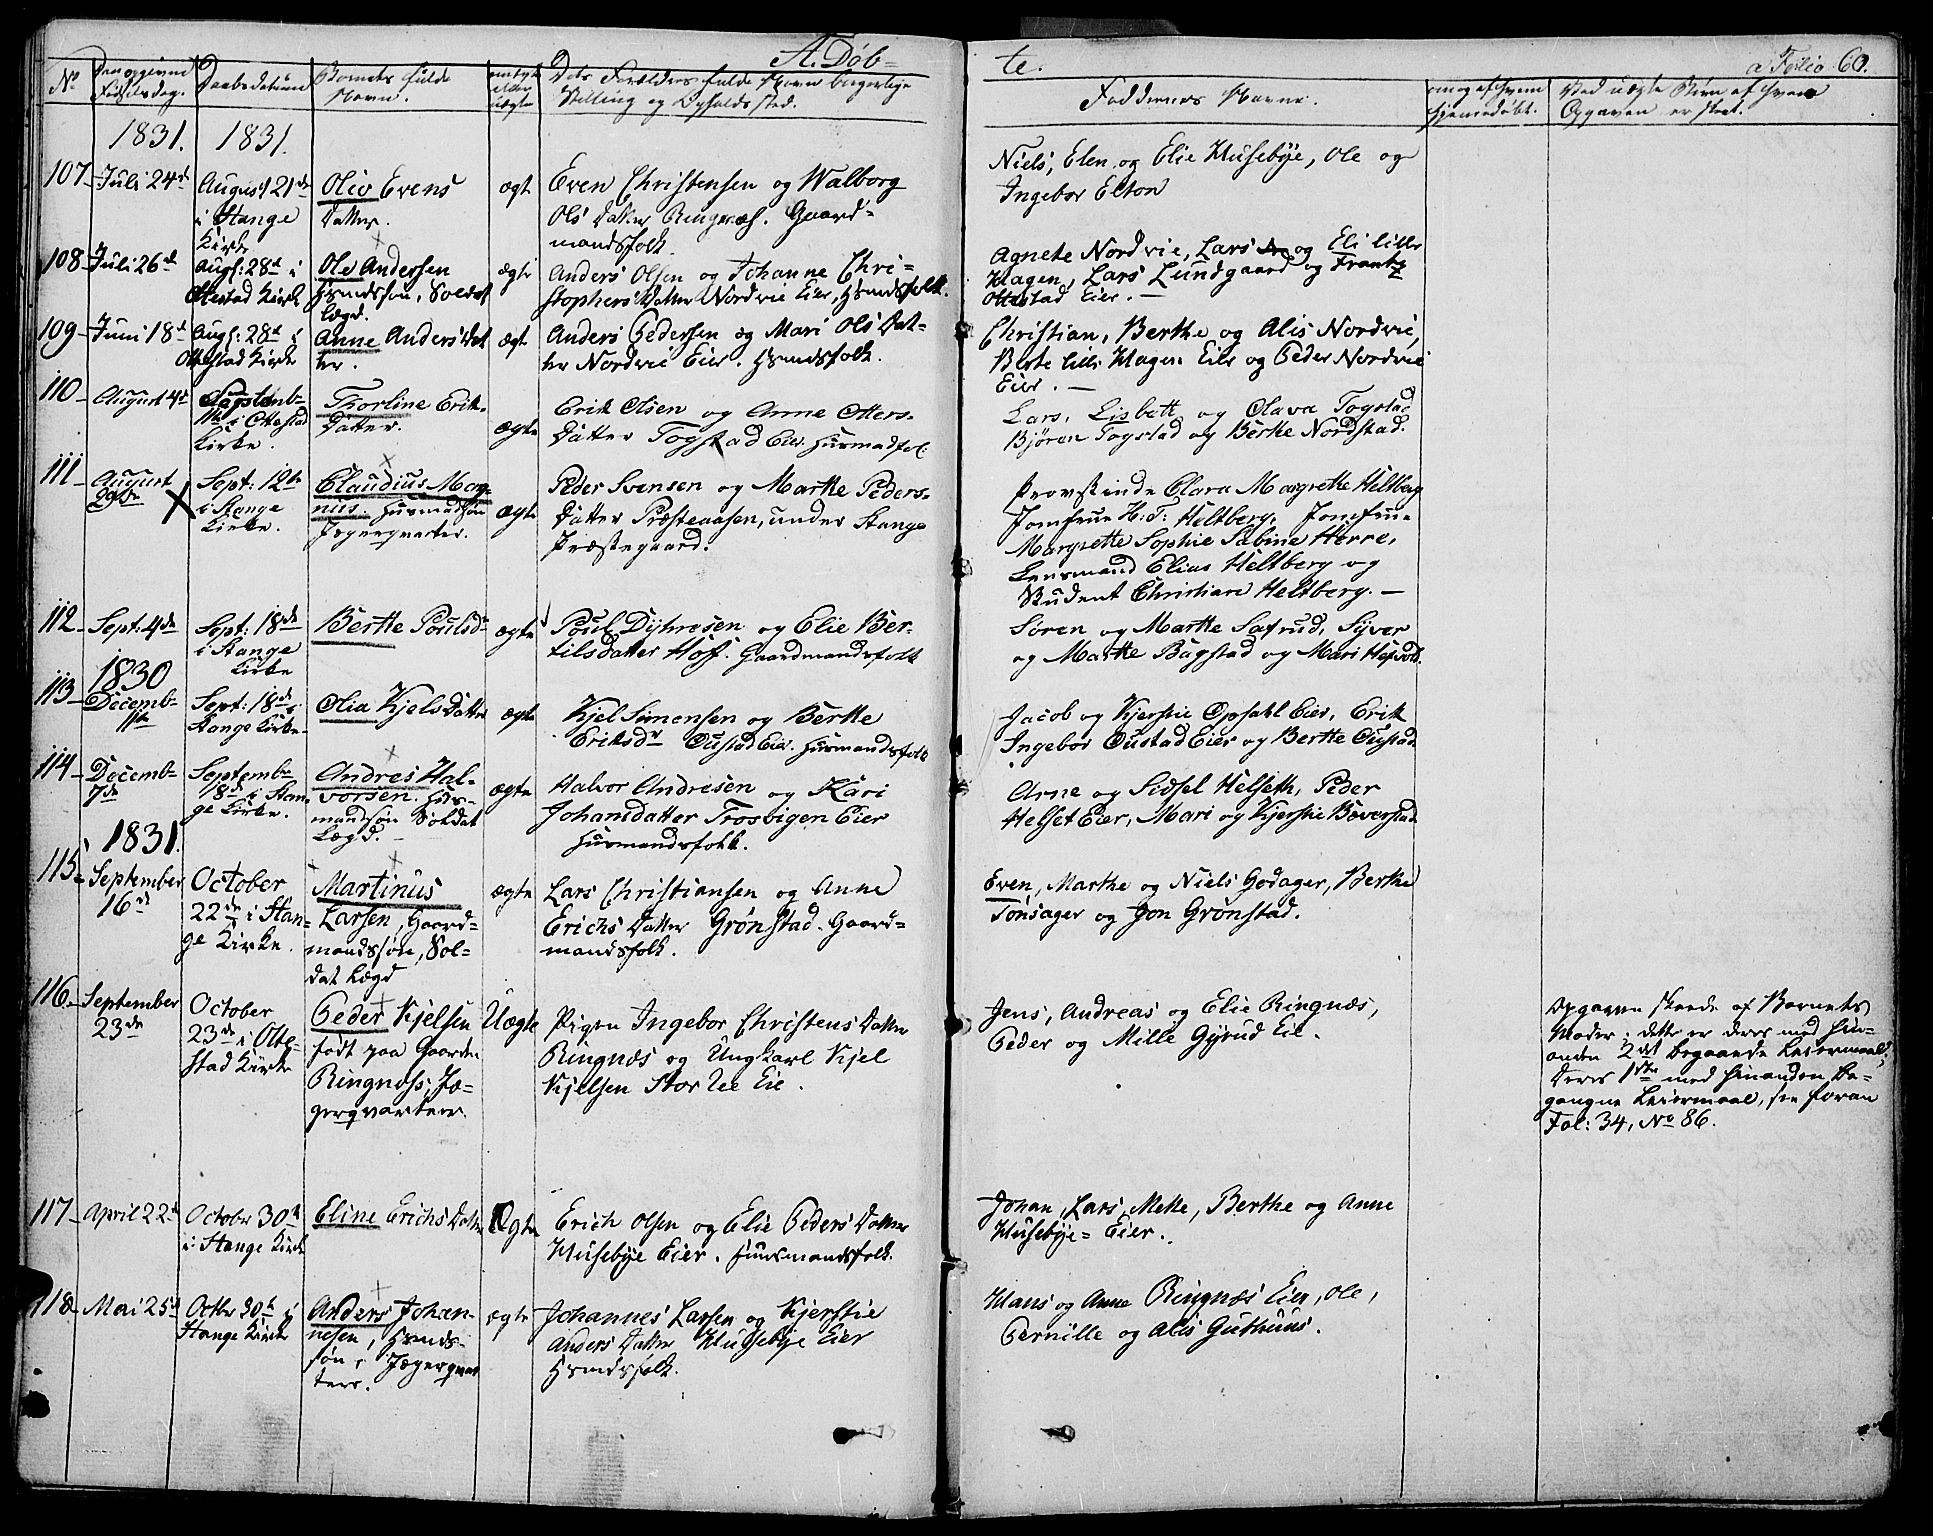 A. Døb-
te.
a Folio 60.
No
Den opgivne Fødselsdag.
Daabsdatum
Barnets fulde Navn.
om ægte eller uægte
Dets Forældres fulde Navn borgerlige
Stilling og Opholdssted.
Faddernes Navne.
om og af hvem hjemmedøbt.
Ved uægte Børn af hvem
Opgaven er skeet.
1831.
1831.
107
Juli 24de
August 21de
i Stange
Kirke
Oliv Evens
Datter.
ægte
Even Christensen og Walborg
Ols Datter Ringnæs. Gaard-
mandsfolk
Niels, Elen og Elie Husebÿe, Ole og
Ingebor Elton
108
Juli 26de
Augs: 28de i
Ottestad Kirke
Ole Andersen
Hsmdssøn, Soldat
Lægd.
ægte
Anders Olsen og Johanne Chri-
stophers Datter Nordvie Eier, Hsmdsfolk.
Agnete Nordvie, Lars og Eli lille
Hagen, Lars Lundgaard og Frantz
Ottestad Eier. —
109
Juni 18de
Augs: 28de i
Ottestad Kirke
Anne Anders Dat
ter.
ægte
Anders Pedersen og Mari Ols Dat-
ter Nordvie Eier. Hsmdsfolk.
Christian, Berthe og Alis Nordvie,
Berte lille Hagen Eier og Peder Nordvie
Eier. —
110
August 4de
Septemb-
11te i Ottestad
Kirke.
Thorline Erik-
Datter.
ægte
Erik Olsen og Anne Otters-
Datter Togstad Eier. Husmadfol:
Lars, Lisbett og Olava Togstad
Björen Togstad og Berthe Nordstad.
111
August
29de
Sept: 12te
i Stange
Kirke.
Claudius Mag-
nus. Husmadsøn
Jægerqvarter.
ægte
Peder Svensen og Marthe Peders-
Datter Præsteaasen, under Stange
Præstegaard.
Provstinde Clara Margrethe Heltberg
Jomfrue H: T: Heltberg, Jomfrue
Margrette Sophie Sabine Herre,
Lensmand Elias Heltberg og
Student Christian Heltberg. —
112
Sept: 4de
Sept: 18de
i Stange
Kirke
Berthe Poulsd:
ægte
Poul Dÿhresen og Elie Ber-
tilsdatter Hof. Gaardmandsfolk
Sören og Marthe Satrud, Sÿver
og Marthe Bagstad og Mari
1830
113
Decemb-
11te
Sept: 18de i
Stange Kirke
Olia Kjels Datter
ægte
Kjel Simensen og Berthe
Eriksdr Oustad Eier. Husmandsfolk
Jacob og Kjerstie Opsahl Eier, Erik
Ingebor Oustad Eier og Berthe Oustad
114
Decemb-
7de
Septemb-
18de i Stan-
ge Kirke.
Andres Hal-
vorsen. Hus-
mandsøn Soldat
Lægd. —
ægte
Halvor Andresen og Kari
Johansdatter Trosvigen Eier
Husmandsfolk.
Arne og Sidsel Helseth, Peder
Helset Eier, Mari og Kjerstie Bæverstad
1831.
115
September
16de
October
22de i Stan-
ge Kirke.
Martinus
Larsen, Gaard-
mandssøn, Sol-
dat Lægd
ægte
Lars Christiansen og Anne
Erichs Datter Grönstad. Gaard-
mandsfolk.
Even, Marthe og Niels Godager, Berthe
Tönsager og Jon Grönstad.
116
September
23de
October
23de i Otte-
stad Kirke
Peder Kjelsen
født paa Gaarden
Ringnæs; Jæ-
gerqvarteer.
Uægte
Pigen Ingebor Christens Datter
Ringnæs og Ungkarl Kjel
Kjelsen Stor Ree Eie.
Jens, Andreas og Elie Ringnæs,
Peder og Mille Gÿrud Eie.
Opgaven skeede af Barnets
Moder; dette er deres med hin-
anden 2det begaaede Leiermaal;
Deres 1ste med hinanden be-
gangne Leiermaal, see foran
Fol: 34, No 86.
117
April 22de
October 30te
i Stange Kirke
Eline Erichs Datter
Ægte
Erich Olsen og Elie Peders Datter
Husebÿe Eier. Huusmandsfolk.
Johan, Lars, Mette, Berthe og Anne
Husebÿe- Eier.
118
Mai 25de
Octbr 30te i
Stange Kirke
Anders Johan-
nesen, Hsmds-
søn, Jægerqvar
teer.
ægte
Johannes Larsen og Kjerstie
Anders Datter Husebÿe Eier
Hsmdsfolk.
Hans og Anne Ringnæs Eier, Ole,
Pernille og Alis Guthuus.